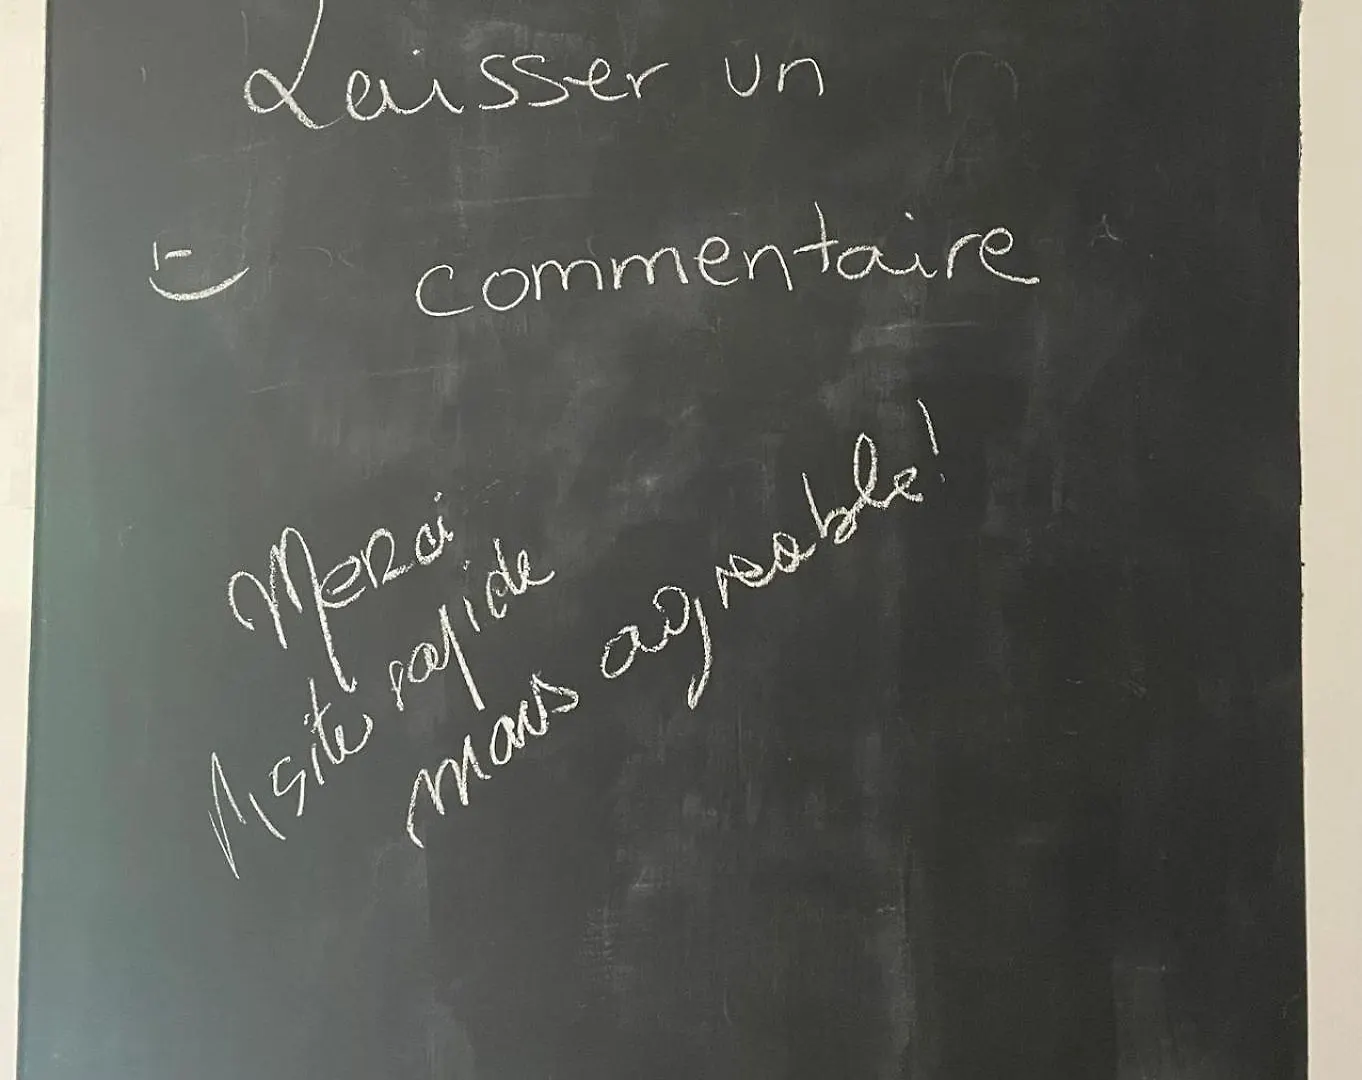 Laisser un
commentaire
Merci
Visite rapide
mais agreable!